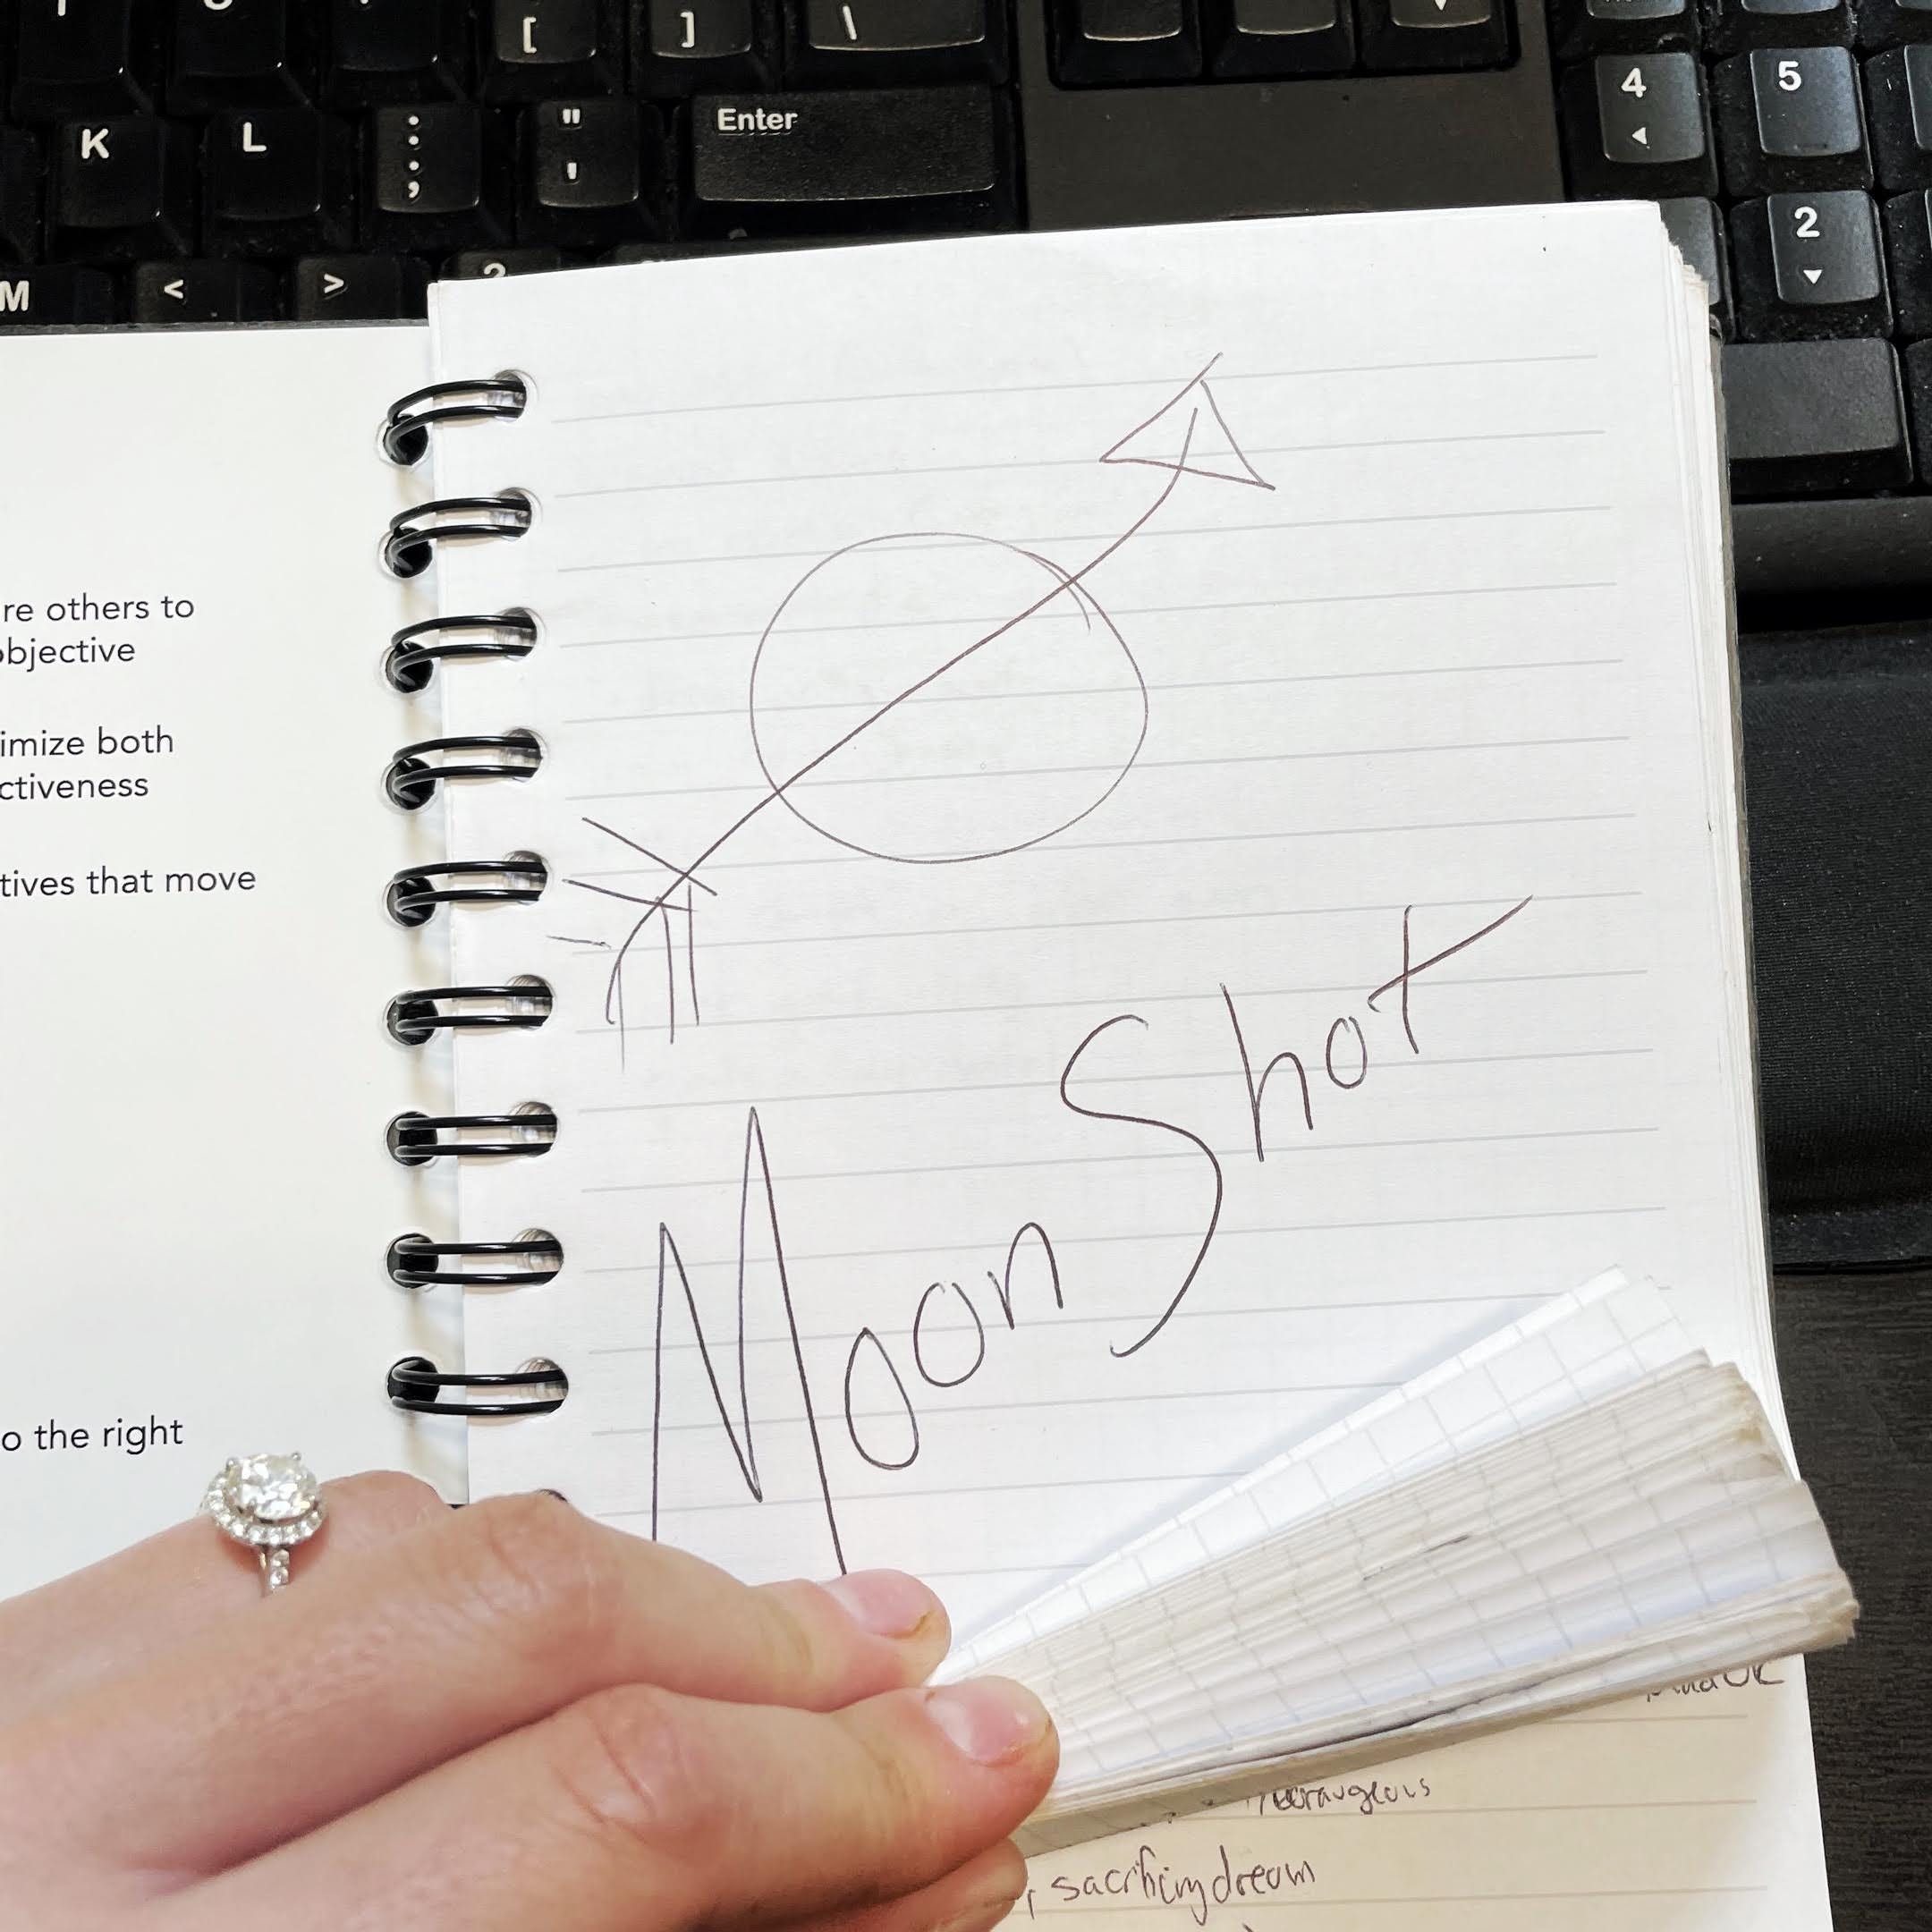 [ ] \
4 5
K L : ; " ' Enter
2
M < > ?
re others to
objective
imize both
ctiveness
tives that move
Moon Shot
o the right
sacrificing dream